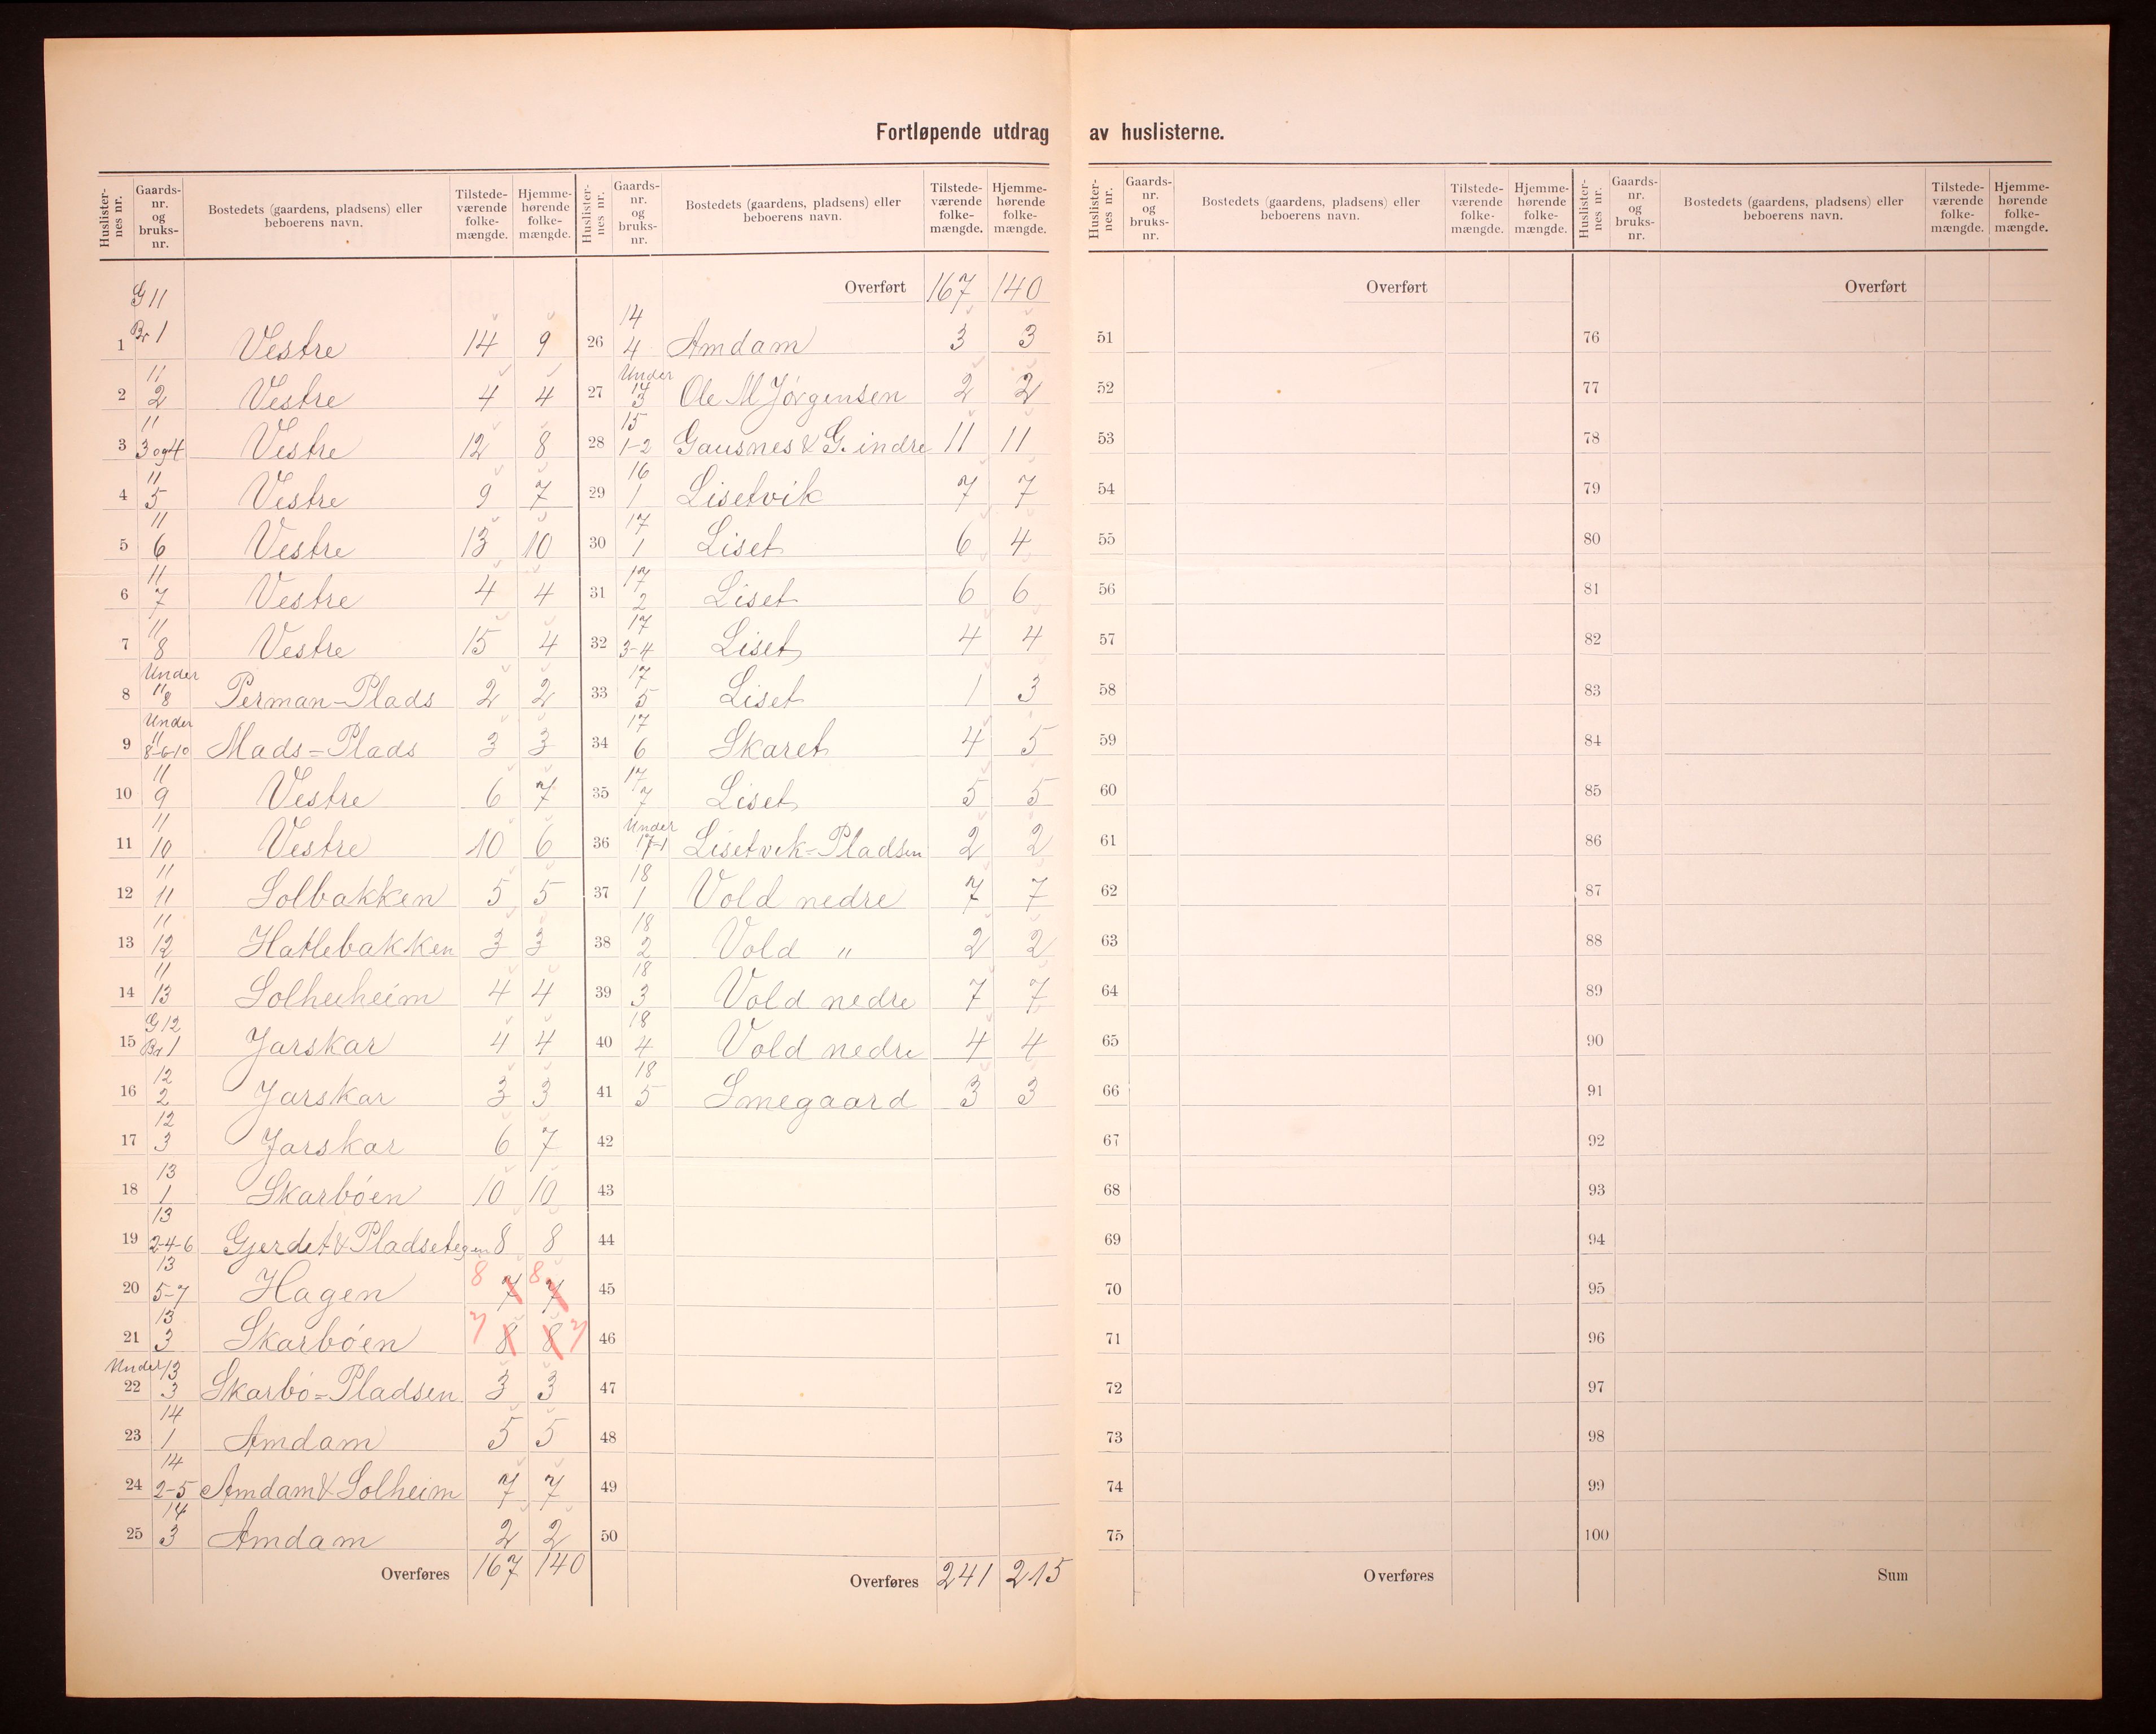 Fortløpende utdrag av huslisterne.
Huslisternes nr. | Gaards-nr. og bruks-nr. | Bostedets (gaardens, pladsens) eller beboerens navn. | Tilstedeværende folkemængde. | Hjemmehørende folkemængde.
1 | G 11 Br 1 | Vestre | 14 | 9
2 | 11 2 | Vestre | 4 | 4
3 | 11 3 og 4 | Vestre | 12 | 8
4 | 11 5 | Vestre | 9 | 7
5 | 11 6 | Vestre | 13 | 10
6 | 11 7 | Vestre | 4 | 4
7 | 11 8 | Vestre | 15 | 4
8 | Under 11 8 | Perman-Plads | 2 | 2
9 | Under 11 8-6-10 | Mads=Plads | 3 | 3
10 | 11 9 | Vestre | 6 | 7
11 | 11 10 | Vestre | 10 | 6
12 | 11 11 | Solbakken | 5 | 5
13 | 11 12 | Hatlebakken | 3 | 3
14 | 11 13 | Solheiheim | 4 | 4
15 | G 12 Br 1 | Jarskar | 4 | 4
16 | 12 2 | Jarskar | 3 | 3
17 | 12 3 | Jarskar | 6 | 7
18 | 13 1 | Skarbóen | 10 | 10
19 | 13 2-4-6 | Gjerdet & Pladsetegen | 8 | 8
20 | 13 5-7 | Hagen | 8 7 | 8 7
21 | 13 3 | Skarbóen | 7 8 | 8 7
22 | Under 13 3 | Skarbó=Pladsen | 3 | 3
23 | 14 1 | Amdam | 5 | 5
24 | 14 2-5 | Amdam & Solheim | 7 | 7
25 | 14 3 | Amdam | 2 | 2
Overføres | 167 | 140
Huslisternes nr. | Gaards-nr. og bruks-nr. | Bostedets (gaardens, pladsens) eller beboerens navn. | Tilstedeværende folkemængde. | Hjemmehørende folkemængde.
Overført | 167 | 140
26 | 14 4 | Amdam | 3 | 3
27 | Under 14 3 | Ole M Jórgensen | 2 | 2
28 | 15 1-2 | Gausnes & G. indre | 11 | 11
29 | 16 1 | Lisetvik | 7 | 7
30 | 17 1 | Liset | 6 | 4
31 | 17 2 | Liset | 6 | 6
32 | 17 3-4 | Liset | 4 | 4
33 | 17 5 | Liset | 1 | 3
34 | 17 6 | Skaret | 4 | 5
35 | 17 7 | Liset | 5 | 5
36 | Under 17-1 | Lisetvik-Pladsen | 2 | 2
37 | 18 1 | Vold nedre | 7 | 7
38 | 18 2 | Vold " | 2 | 2
39 | 18 3 | Vold nedre | 7 | 7
40 | 18 4 | Vold nedre | 4 | 4
41 | 18 5 | Smegaard | 3 | 3
42
43
44
45
46
47
48
49
50
Overføres | 241 | 215
Huslisternes nr. | Gaards-nr. og bruks-nr. | Bostedets (gaardens, pladsens) eller beboerens navn. | Tilstedeværende folkemængde. | Hjemmehørende folkemængde.
Overført
51
52
53
54
55
56
57
58
59
60
61
62
63
64
65
66
67
68
69
70
71
72
73
74
75
Overføres
Huslisternes nr. | Gaards-nr. og bruks-nr. | Bostedets (gaardens, pladsens) eller beboerens navn. | Tilstedeværende folkemængde. | Hjemmehørende folkemængde.
Overført
76
77
78
79
80
81
82
83
84
85
86
87
88
89
90
91
92
93
94
95
96
97
98
99
100
Sum